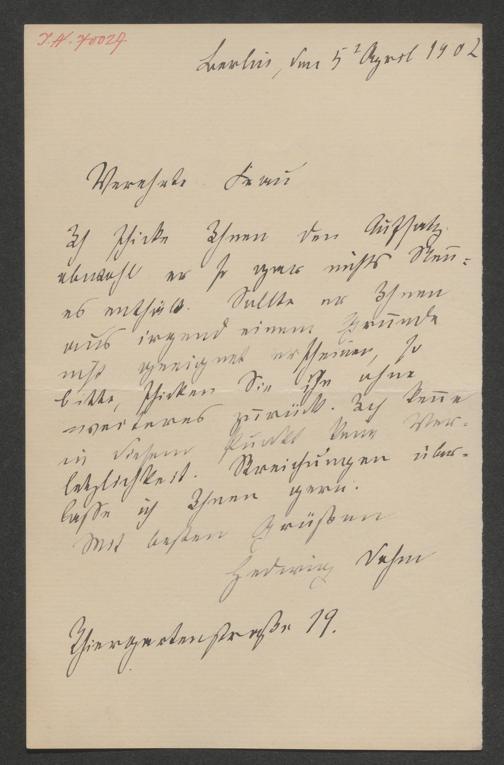 I.N. 70027
Berlin, den 5t April 1902
Verehrte Frau
Ich schicke Ihnen den Aufsatz
obwohl er so gar nichts Neu-
es enthält. Sollte er Ihnen
aus irgend einem Grunde
nicht geeignet erscheinen, so
bitte, schicken Sie ihn ohne
weiteres zurück. Ich kenne
in diesem Punkt keine Ver-
letzlichkeit. Streichungen über-
lasse ich Ihnen gern.
Mit besten Grüßen
Hedwig Dohm
Thiergartenstraße 19.